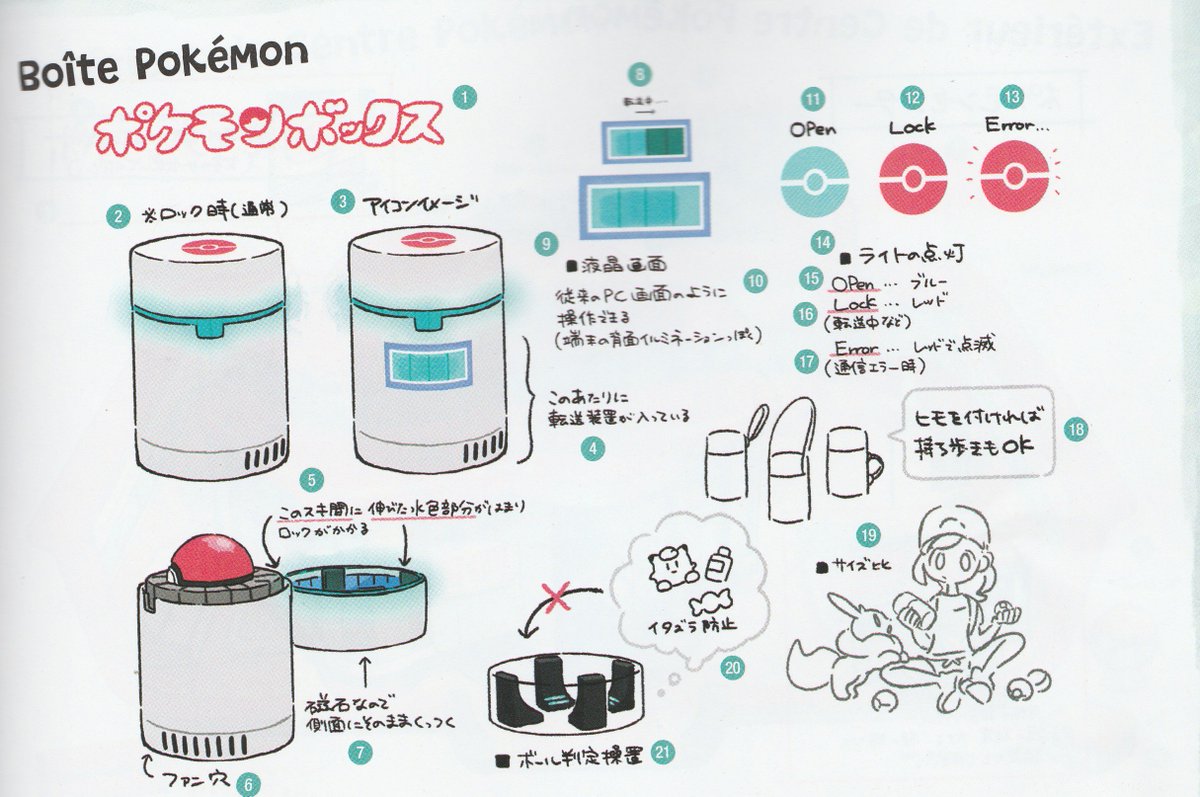 Boîte Pokémon
ポケモンボックス
1
2
※ロック時(通常)
3
アイコンイメージ
このあたりに
転送装置が入っている
4
5
このスキ間に 伸びた水色部分がはまり
ロックがかかる
ファン穴
6
磁石なので
側面にそのままくっつく
7
8
転送中...
9
■液晶画面
10
従来のPC画面のように
操作できる
(端末の背面イルミネーションっぽく)
11
Open
12
Lock
13
Error...
14
■ライトの点灯
15
Open … ブルー
16
Lock … レッド
(転送中など)
17
Error … レッドで点滅
(通信エラー時)
ヒモを付ければ
持ち歩きもOK
18
19
■サイズ比
イタズラ防止
20
■ボール判定装置
21